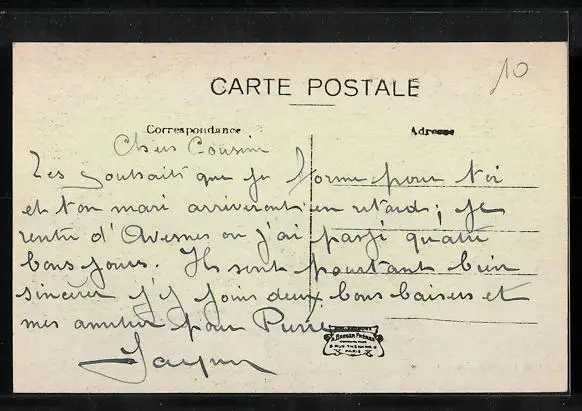 10
CARTE POSTALE
Correspondance
Adresse
Cher Cousin
Les souhaits que je forme pour toi
et ton mari arriveront en retard ; je
rentre d'Avesnes ou j'ai passé quatre
bons jours. Ils sont pourtant bien
sincères j'y joins deux bons baisers et
mes amitiés pour Pierre
BREGER FRÈRES
9 RUE THÉNARD 9
PARIS